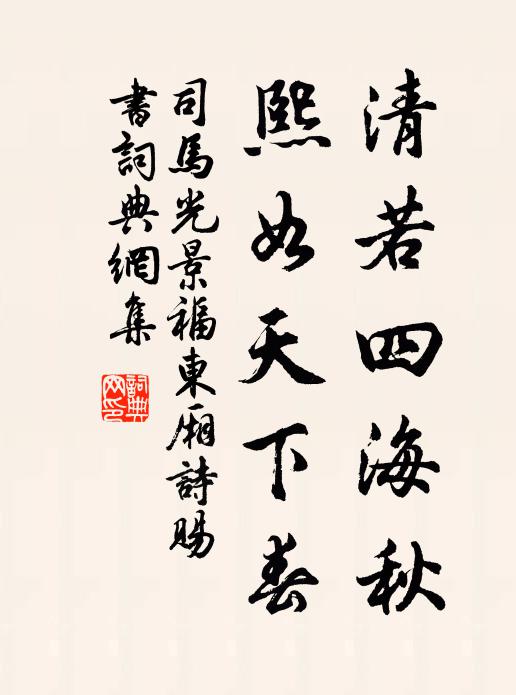 清若四海秋
熙如天下春
司馬光景福東廂詩賜
書詞典網集
詞典網印